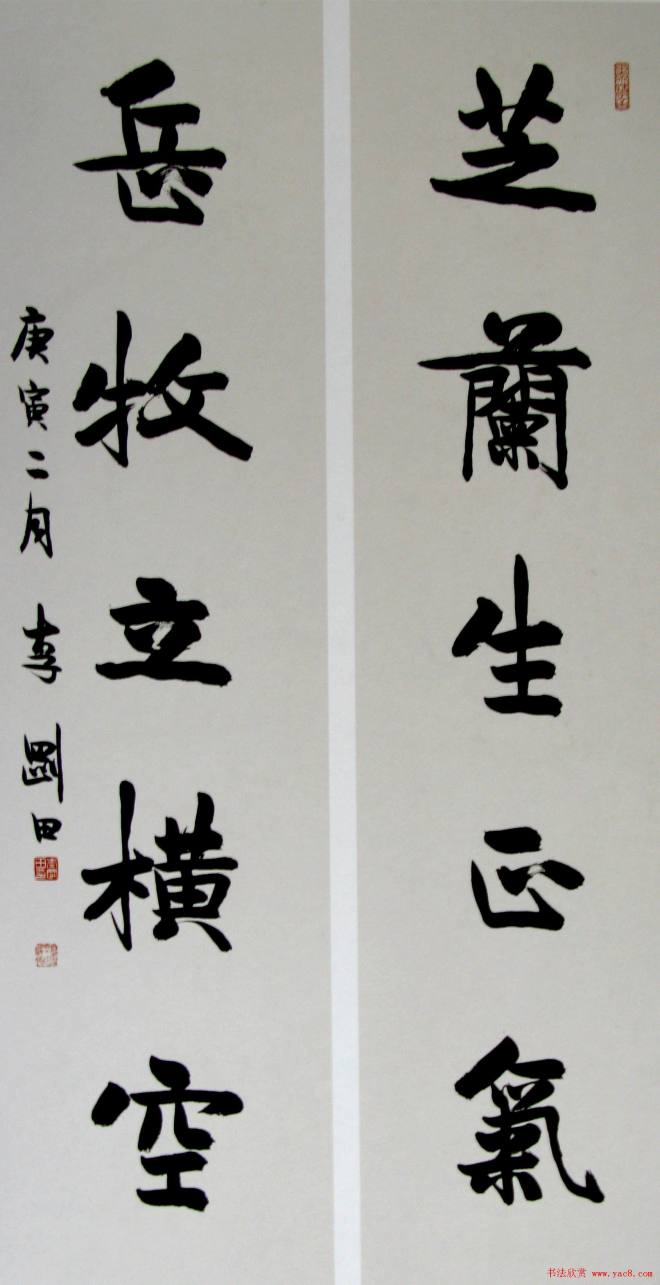 芝蘭生正氣
岳牧立橫空
庚寅二月李剛田
书法欣赏 www.yac8.com